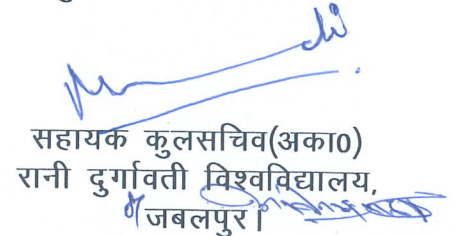 सहायक कुलसचिव(अका0)
रानी दुर्गावती विश्वविद्यालय,
जबलपुर।